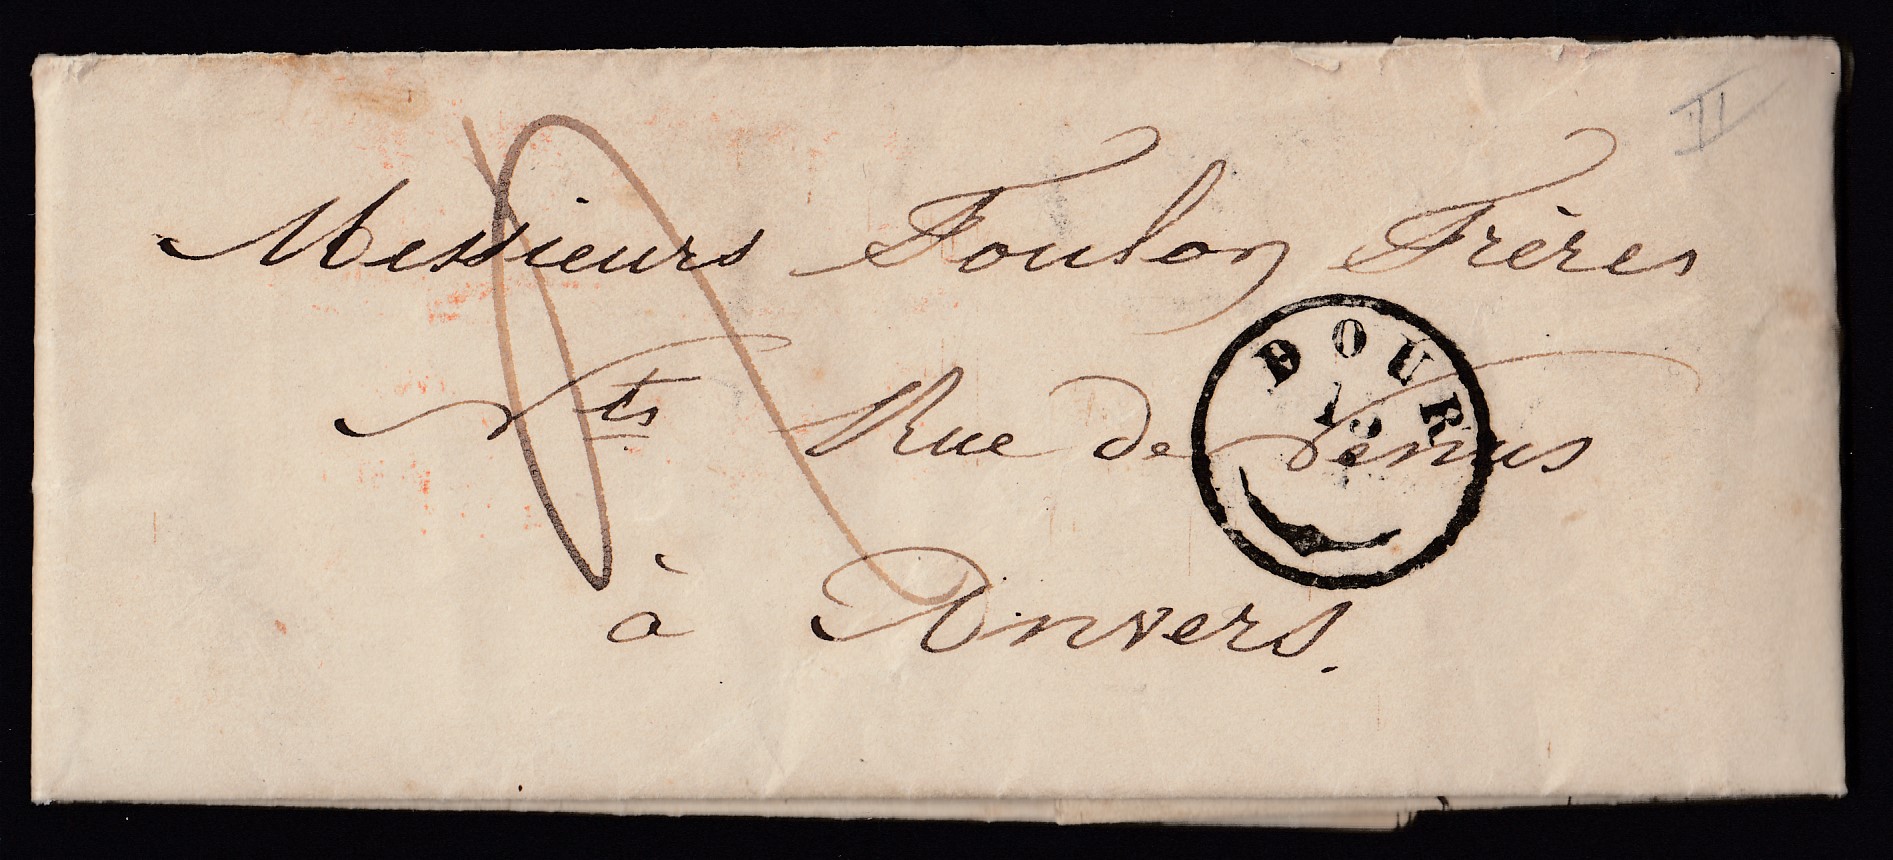 II
Messieurs Foulon Frères
Nts Rue de Venus
à Anvers.
DOUR